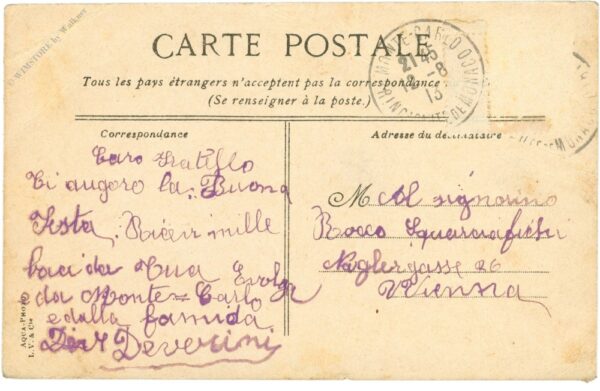 © WIMSTORE by Walkner
CARTE POSTALE
Tous les pays étrangers n'acceptent pas la correspondance
(Se renseigner à la poste.)
MONTE-CARLO
PRINCIPAUTÉ DE MONACO
Correspondance
Adresse du destinataire
Caro Fratello
Ti auguro la Buona
Festa, Ricevi mille
baci da Tua
da Monte=Carlo
e dalla
Deverini
M Al signorino
Rocco
Naglergasse 26
Vienna
AQUA-PHOTO
L. V. & Cie